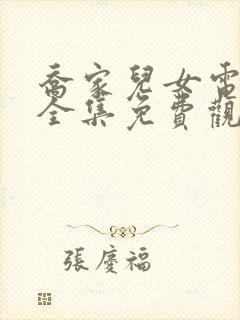 喬家兒女電
全集免費觀
張慶福